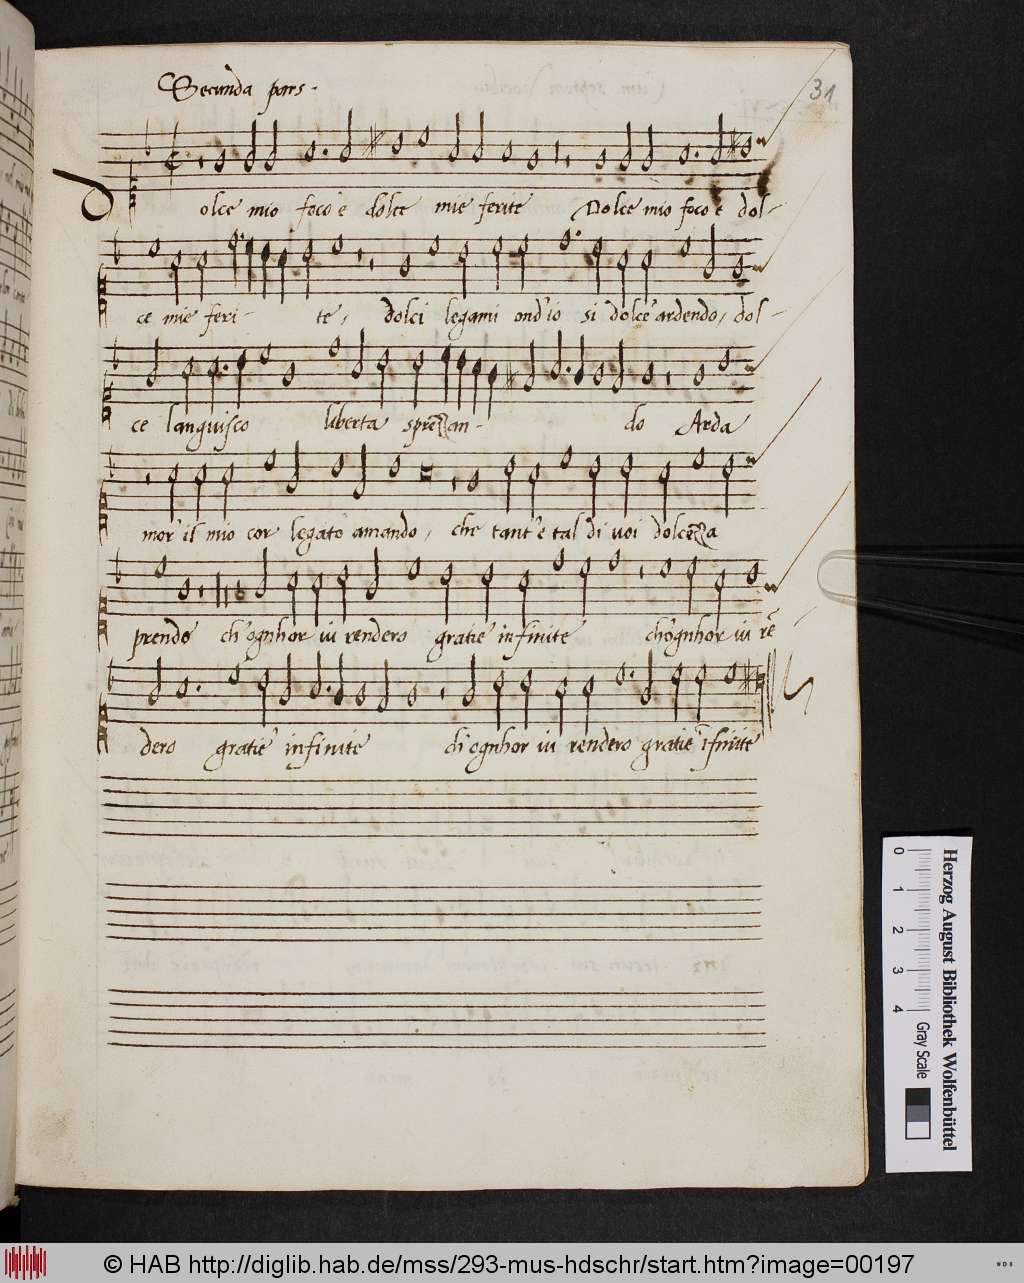 Secunda pars.
31
Dolce mio foco e dolce mie ferite Dolce mio foco e dol-
ce mie feri- te, dolci legami ond'io si dolce ardendo, dol-
ce languisco liberta sprezzan- do Arda
mor' il mio cor legato amando, che tant'e tal di voi dolcezza
prendo ch'ognhor vi rendero gratie infinite ch'ognhor vi rē
dero gratie infinite ch'ognhor vi rendero gratie ifinite
0 1 2 3 4 Gray Scale
Herzog August Bibliothek Wolfenbüttel
© HAB http://diglib.hab.de/mss/293-mus-hdschr/start.htm?image=00197